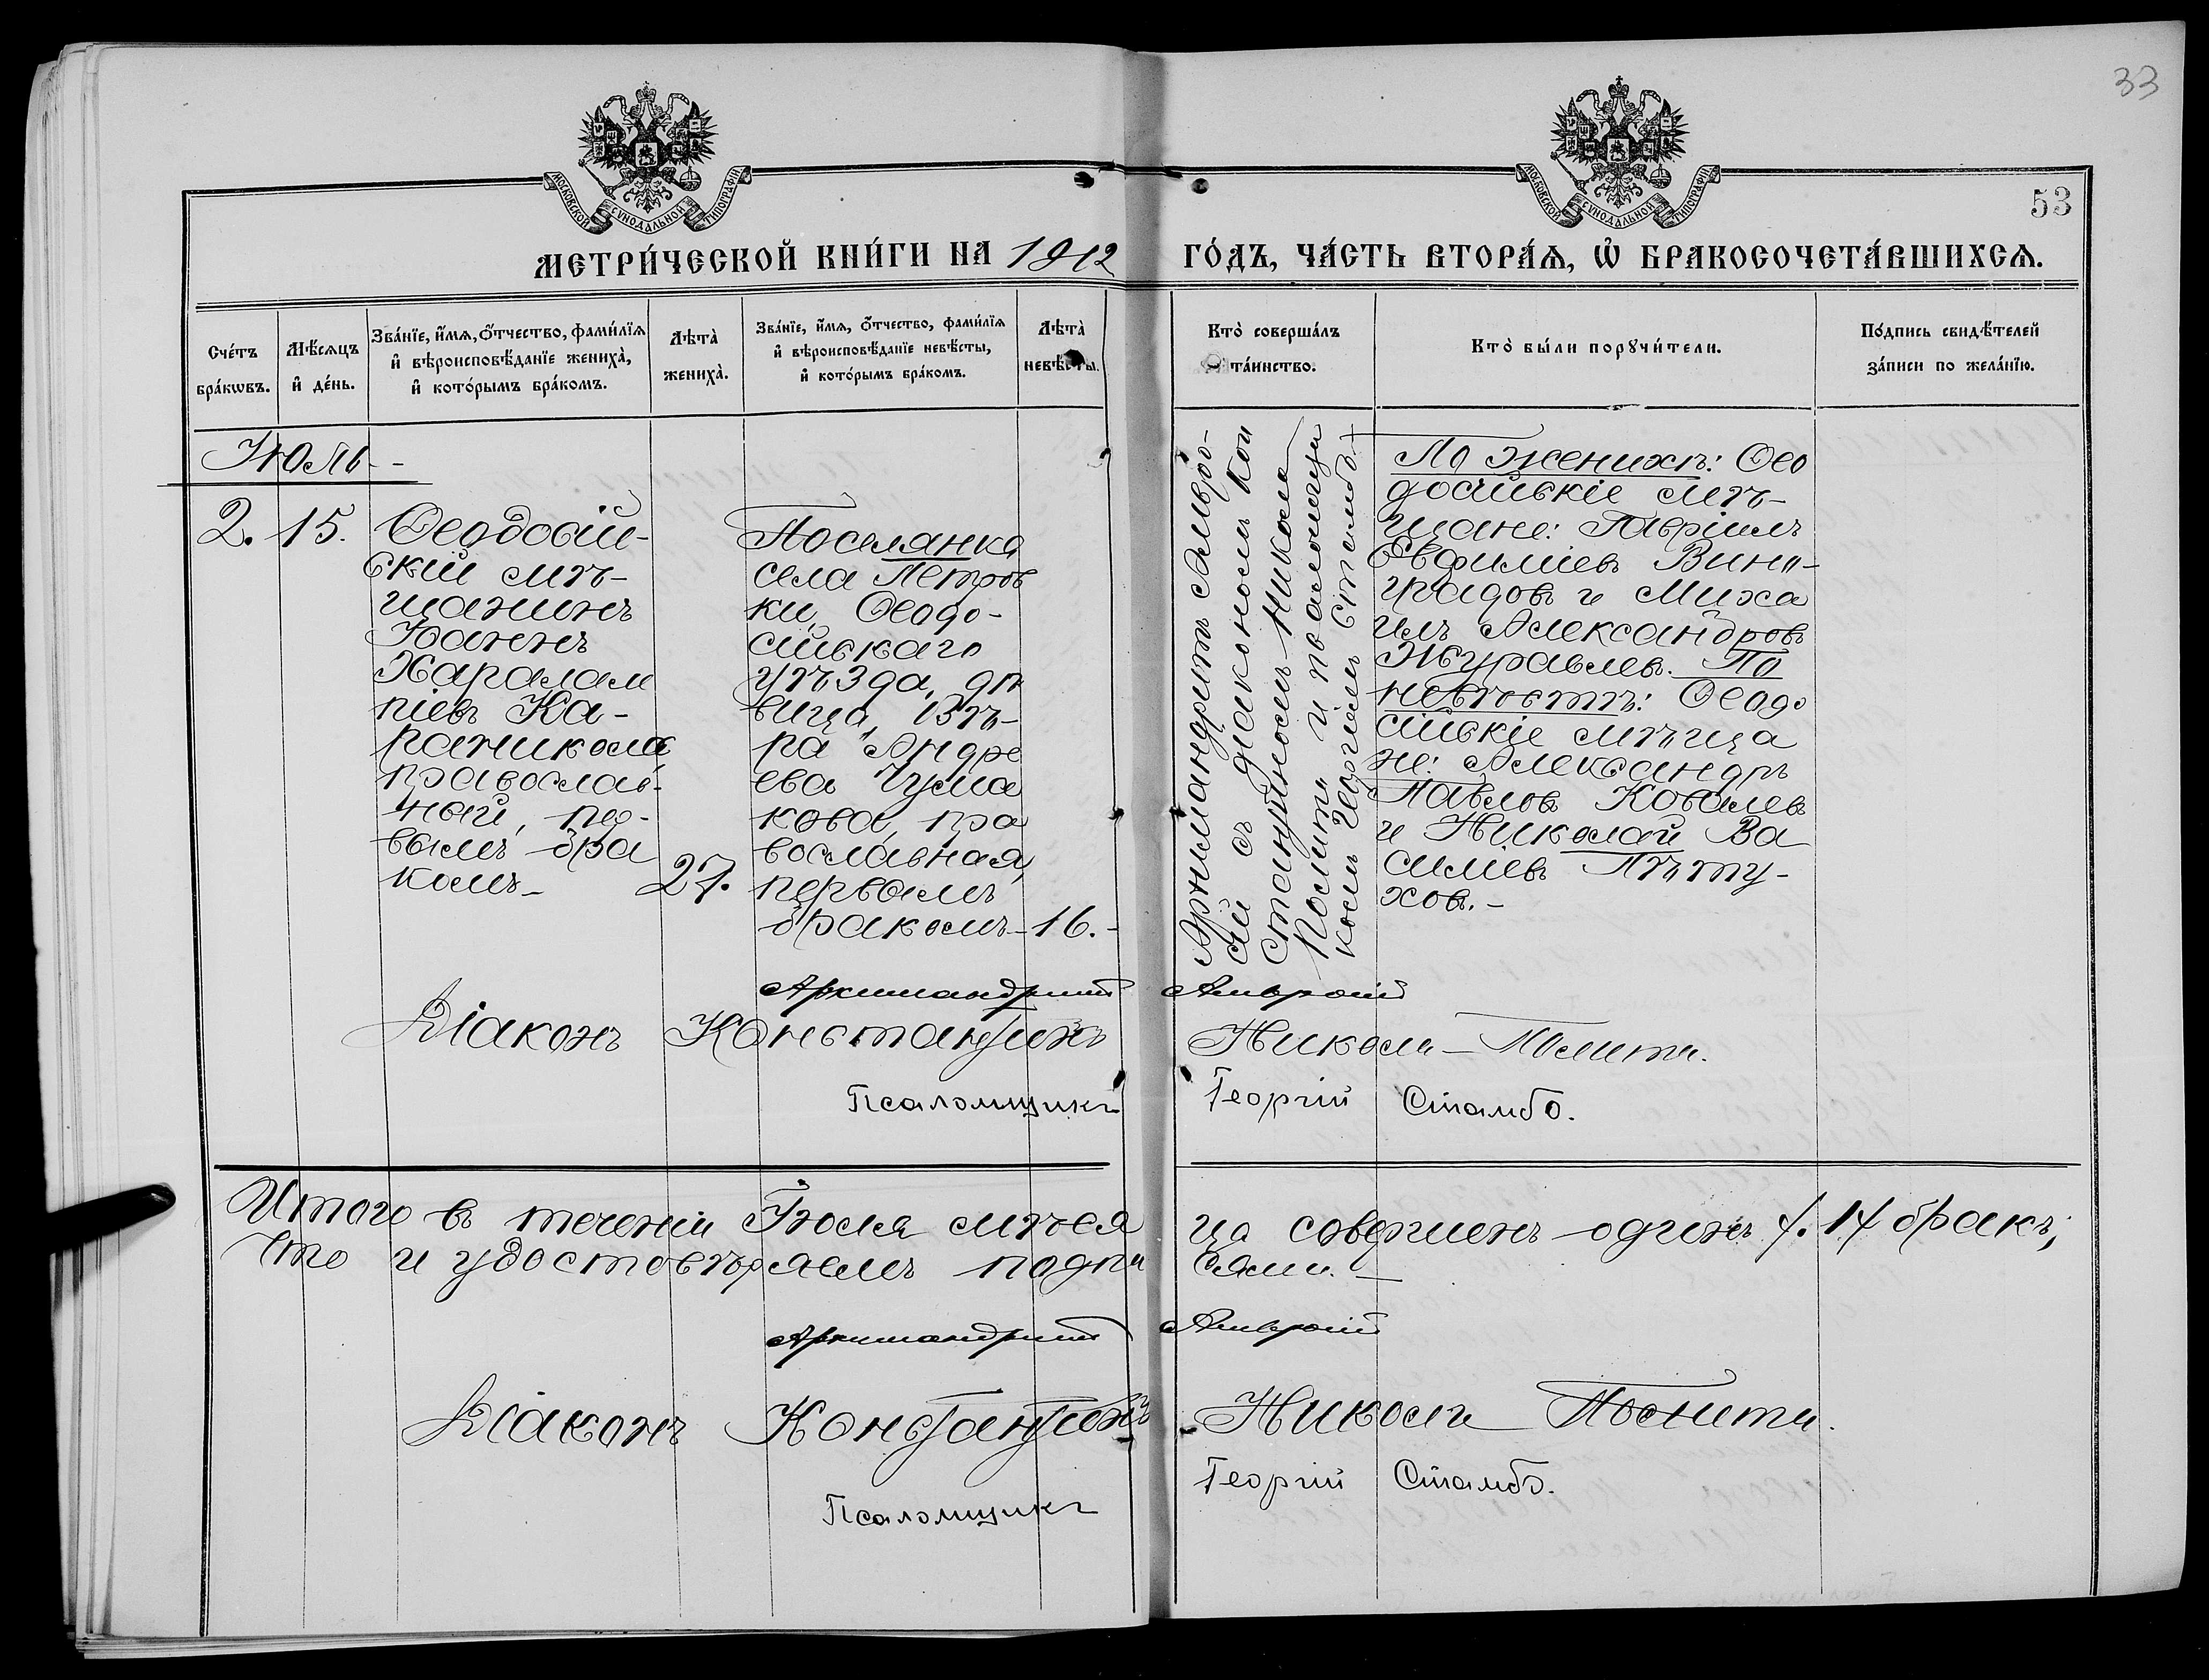 33
53
МОСКОВСКОЙ СѴНОДАЛЬНОЙ ТИПОГРАФІИ
МОСКОВСКОЙ СѴНОДАЛЬНОЙ ТИПОГРАФІИ
МЕТРИ́ЧЕСКОЙ КНИ́ГИ НА 1912 ГО́ДЪ, ЧА́СТЬ ВТОРА́Ѧ, Ѡ҆ БРАКОСОЧЕТА́ВШИХСѦ.
Сче́тъ
бра́кѡвъ.
Мѣ́сѧцъ
и҆ де́нь.
Зва́нїе, и҆́мѧ, ѻ҆́тчество, фами́лїѧ
и҆ вѣроисповѣ́данїе жениха̀,
и҆ кото́рымъ бра́комъ.
Лѣта̀
жениха̀.
Зва́нїе, и҆́мѧ, ѻ҆́тчество, фами́лїѧ
и҆ вѣроисповѣ́данїе невѣ́сты,
и҆ кото́рымъ бра́комъ.
Лѣта̀
невѣ́сты.
Кто̀ соверша́лъ
та́инство.
Кто̀ бы́ли порꙋчи́тели.
По́дпись свидѣ́телей
за́писи по жела́нїю.
Июль
2.
15.
Ѳеодосій-
скій мѣ-
щанинъ
Іоаннъ
Харалам
піевъ Ка-
раникола,
православ-
ный, пер-
вымъ бра
комъ
27.
Поселянка
села Петров
ки, Ѳеодо-
сійскаго
уѣзда, дѣ
вица, Вѣ-
ра Андре
ева Чума
кова, пра
вославная,
первымъ
бракомъ
16.
Архимандритъ Амвро-
сій съ діакономъ Кон
стантиномъ Никола
Полити и псаломщи
комъ Георгіемъ Стамбо.
По женихѣ: Ѳео
досійскіе мѣ-
щане: Гавріилъ
Евфиміевъ Вино-
градовъ и Миха
илъ Александровъ
Журавлевъ. По
невѣстѣ: Ѳеодо
сійскіе мѣща
не: Александръ
Павловъ Ковалевъ
и Николай Ва
силіевъ Пѣту-
ховъ.
Архимандритъ Амвросій
Діаконъ Константинъ Никола-Полити.
Псаломщикъ Георгій Стамбо.
Итого въ теченіи Іюля мѣся ца совершенъ одинъ /.1/ бракъ,
что и удостовѣряемъ подпи сями.
Архимандритъ Амвросій
Діаконъ Константинъ Никола Полити.
Псаломщикъ Георгій Стамбо.